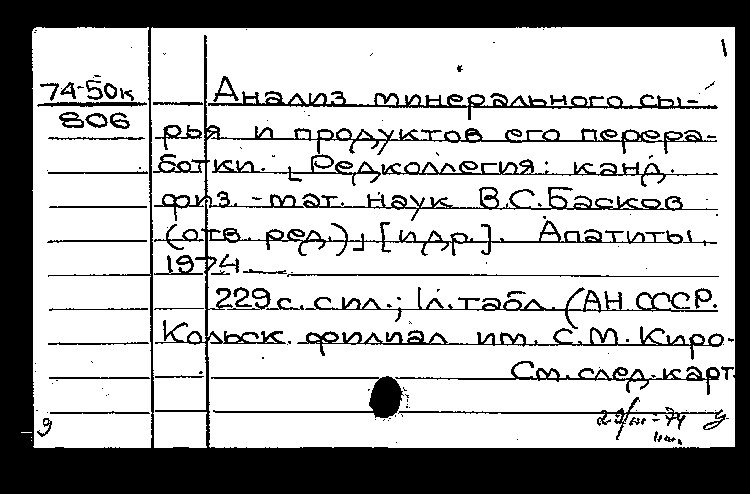 1
74-50к
806
Анализ минерального сы-
рья и продуктов его перера-
ботки. [Редколлегия: канд.
физ.-мат. наук В.С.Басков
(отв. ред.)] [и др.]. Апатиты,
1974.
229 с. с ил.; 1 л. табл. (АН СССР.
Кольск. филиал им. С.М. Киро-
См. след. карт.
9
22/III-74